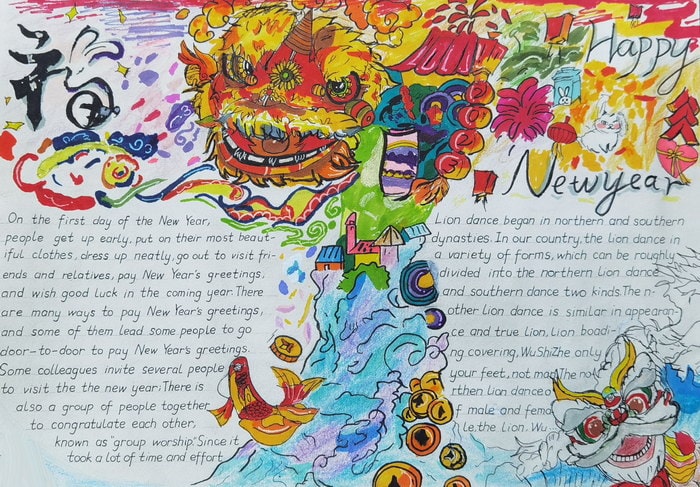 福
Happy
New year
On the first day of the New Year,
people get up early, put on their most beaut-
iful clothes, dress up neatly, go out to visit fri-
ends and relatives, pay New Year's greetings,
and wish good luck in the coming year. There
are many ways to pay New Year's greetings,
and some of them lead some people to go
door-to-door to pay New Year's greetings.
Some colleagues invite several people
to visit the the new year; There is
also a group of people together
to congratulate each other,
known as "group worship". Since it
took a lot of time and effort
Lion dance began in northern and southern
dynasties. In our country, the lion dance in
a variety of forms, which can be roughly
divided into the northern lion dance
and southern dance two kinds. The n-
other lion dance is similar in appearan-
ce and true lion, Lion boadi-
ng covering, WuShiZhe only
your feet, not
The no
rthen lion dance o
f male and femo
le. the Lion, Wu